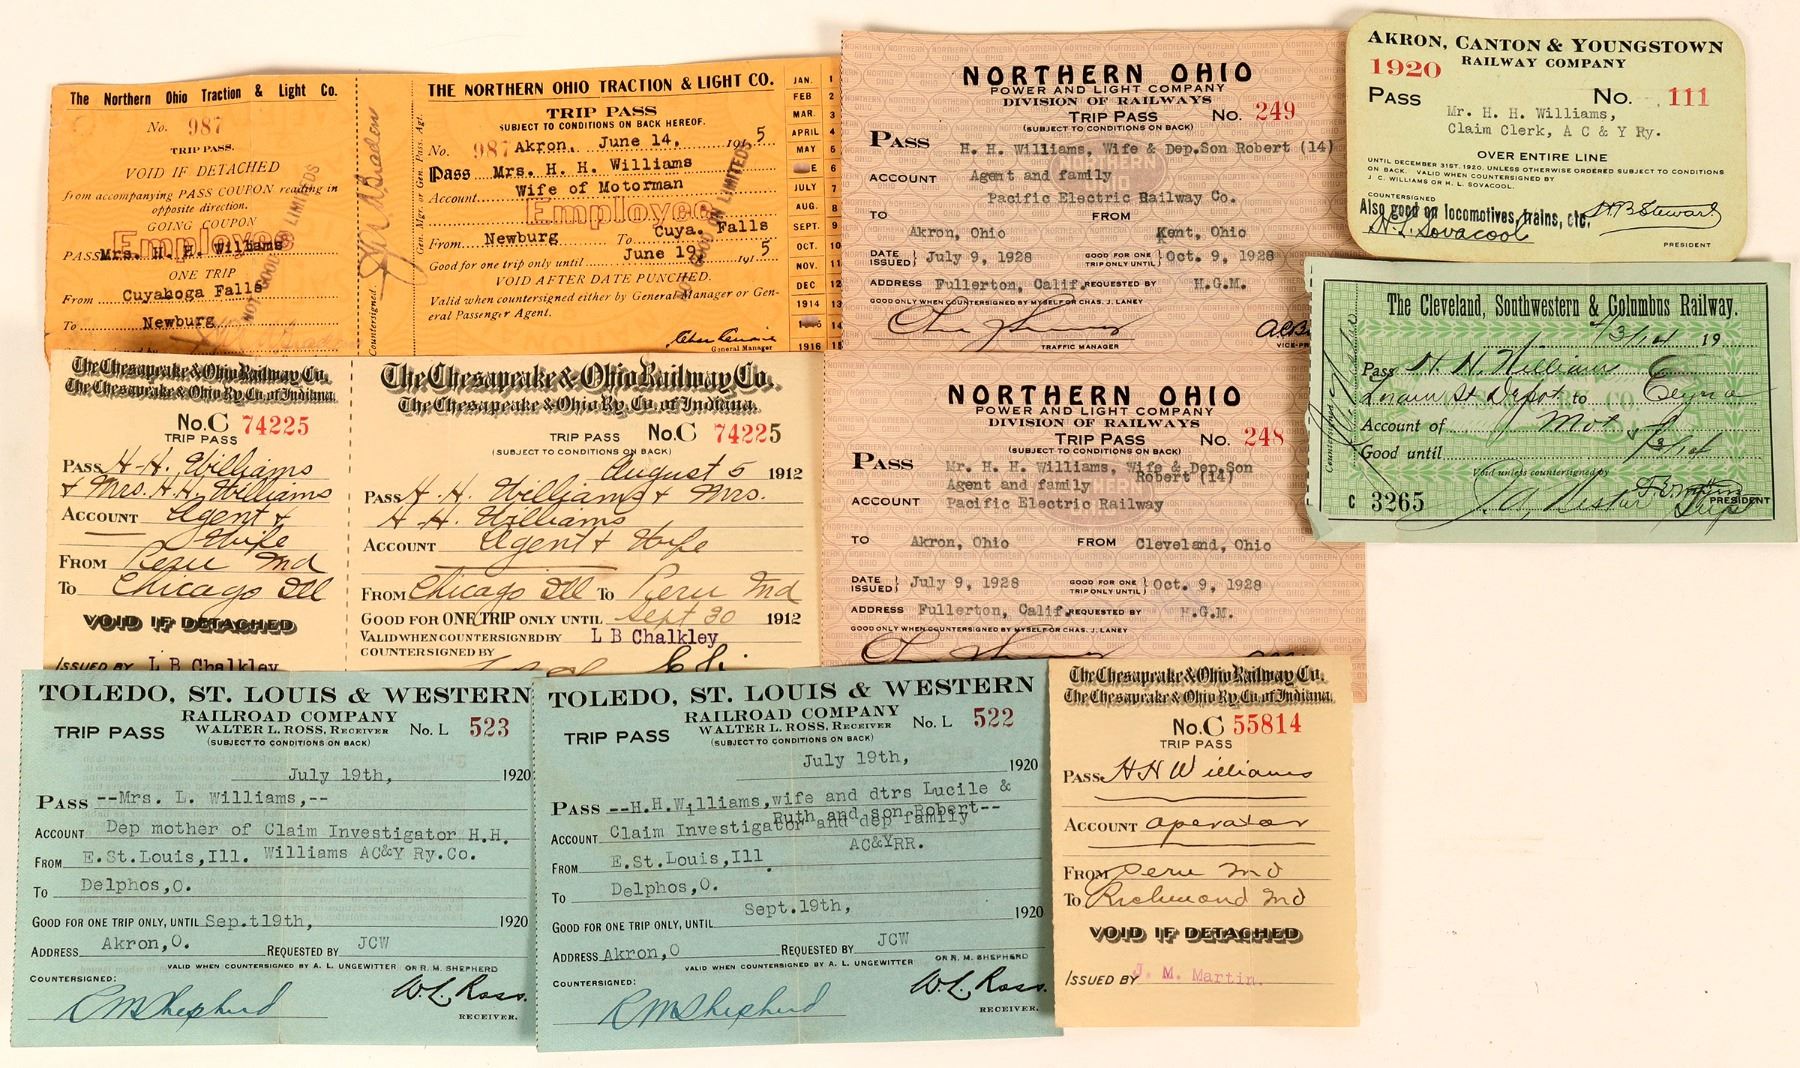 The Northern Ohio Traction & Light Co.
No. 987
TRIP PASS.
VOID IF DETACHED
from accompanying PASS COUPON reading in
opposite direction.
GOING COUPON
Employee
PASS Mrs. H. H. Williams
ONE TRIP
From Cuyahoga Falls
To Newburg
NOT GOOD ON LIMITEDS
Countersigned.
Gen. Mgr. or Gen. Pass. Agt.
THE NORTHERN OHIO TRACTION & LIGHT CO.
TRIP PASS
SUBJECT TO CONDITIONS ON BACK HEREOF.
No. 987 Akron, June 14, 1915
Pass Mrs. H. H. Williams
Account Wife of Motorman
Employee
From Newburg To Cuya. Falls
Good for one trip only until June 19, 1915
VOID AFTER DATE PUNCHED.
Valid when countersigned either by General Manager or Gen-
eral Passenger Agent.
General Manager
NOT GOOD ON LIMITEDS
JAN. 1
FEB 2
MAR. 3
APRIL 4
MAY 5
E 6
JULY 7
AUG. 8
SEPT. 9
OCT. 10
NOV. 11
DEC 12
1914 13
14
1916 15
NORTHERN OHIO
POWER AND LIGHT COMPANY
DIVISION OF RAILWAYS
TRIP PASS No. 249
(SUBJECT TO CONDITIONS ON BACK)
PASS H. H. Williams, Wife & Dep.Son Robert (14)
ACCOUNT Agent and family
Pacific Electric Railway Co.
TO FROM
Akron, Ohio Kent, Ohio
DATE ISSUED July 9, 1928 GOOD FOR ONE TRIP ONLY UNTIL Oct. 9, 1928
ADDRESS Fullerton, Calif. REQUESTED BY H.G.M.
GOOD ONLY WHEN COUNTERSIGNED BY MYSELF OR CHAS. J. LANEY
TRAFFIC MANAGER VICE-PR
AKRON, CANTON & YOUNGSTOWN
RAILWAY COMPANY
1920
PASS No. 111
Mr. H. H. Williams,
Claim Clerk, A C & Y Ry.
OVER ENTIRE LINE
UNTIL DECEMBER 31ST, 1920, UNLESS OTHERWISE ORDERED SUBJECT TO CONDITIONS
ON BACK. VALID WHEN COUNTERSIGNED BY
J. C. WILLIAMS OR H. L. SOVACOOL.
COUNTERSIGNED
Also good on locomotives, trains, etc. H B Stewart
H. L. Sovacool
PRESIDENT
The Cleveland, Southwestern & Columbus Railway.
4/3/14 19
Pass H. H. Williams
Lorain St Depot to Elyria
Account of Mot
Good until
Void unless countersigned by
PRESIDENT
C 3265
Countersigned
The Chesapeake & Ohio Railway Co.
The Chesapeake & Ohio Ry. Co. of Indiana.
No. C 74225
TRIP PASS
PASS H. H. Williams
& Mrs. H. H. Williams
ACCOUNT Agent &
Wife
FROM Peru Ind
To Chicago Ill
VOID IF DETACHED
ISSUED BY L B Chalkley
The Chesapeake & Ohio Railway Co.
The Chesapeake & Ohio Ry. Co. of Indiana.
TRIP PASS No. C 74225
(SUBJECT TO CONDITIONS ON BACK)
August 5 1912
PASS H. H. Williams & Mrs.
H. H. Williams
ACCOUNT Agent & Wife
FROM Chicago Ill To Peru Ind
GOOD FOR ONE TRIP ONLY UNTIL Sept 30 1912
VALID WHEN COUNTERSIGNED BY L B Chalkley
COUNTERSIGNED BY
NORTHERN OHIO
POWER AND LIGHT COMPANY
DIVISION OF RAILWAYS
TRIP PASS No. 248
(SUBJECT TO CONDITIONS ON BACK)
PASS Mr. H. H. Williams, Wife & Dep.Son
Agent and family Robert (14)
ACCOUNT Pacific Electric Railway
TO Akron, Ohio FROM Cleveland, Ohio
DATE ISSUED July 9, 1928 GOOD FOR ONE TRIP ONLY UNTIL Oct. 9, 1928
ADDRESS Fullerton, Calif. REQUESTED BY H.G.M.
GOOD ONLY WHEN COUNTERSIGNED BY MYSELF OR CHAS. J. LANEY
TOLEDO, ST. LOUIS & WESTERN
RAILROAD COMPANY
TRIP PASS WALTER L. ROSS, RECEIVER No. L 523
(SUBJECT TO CONDITIONS ON BACK)
July 19th, 1920
PASS --Mrs. L. Williams,--
ACCOUNT Dep mother of Claim Investigator H.H.
FROM E.St.Louis,Ill. Williams AC&Y Ry.Co.
To Delphos,O.
GOOD FOR ONE TRIP ONLY, UNTIL Sep.t19th, 1920
ADDRESS Akron,O. REQUESTED BY JCW
VALID WHEN COUNTERSIGNED BY A. L. UNGEWITTER OR R. M. SHEPHERD
COUNTERSIGNED:
R M Shepherd W. L. Ross.
RECEIVER.
TOLEDO, ST. LOUIS & WESTERN
RAILROAD COMPANY
TRIP PASS WALTER L. ROSS, RECEIVER No. L 522
(SUBJECT TO CONDITIONS ON BACK)
July 19th, 1920
PASS --H.H.Williams,wife and dtrs Lucile &
Ruth and son Robert--
ACCOUNT Claim Investigator and dep family
AC&YRR.
FROM E.St.Louis,Ill
To Delphos,O.
GOOD FOR ONE TRIP ONLY, UNTIL Sept.19th, 1920
ADDRESS Akron,O REQUESTED BY JCW
VALID WHEN COUNTERSIGNED BY A. L. UNGEWITTER OR R. M. SHEPHERD
COUNTERSIGNED:
R M Shepherd W. L. Ross.
RECEIVER.
The Chesapeake & Ohio Railway Co.
The Chesapeake & Ohio Ry. Co. of Indiana.
No. C 55814
TRIP PASS
PASS H H Williams
ACCOUNT operator
FROM Peru Ind
To Richmond Ind
VOID IF DETACHED
ISSUED BY J. M. Martin.